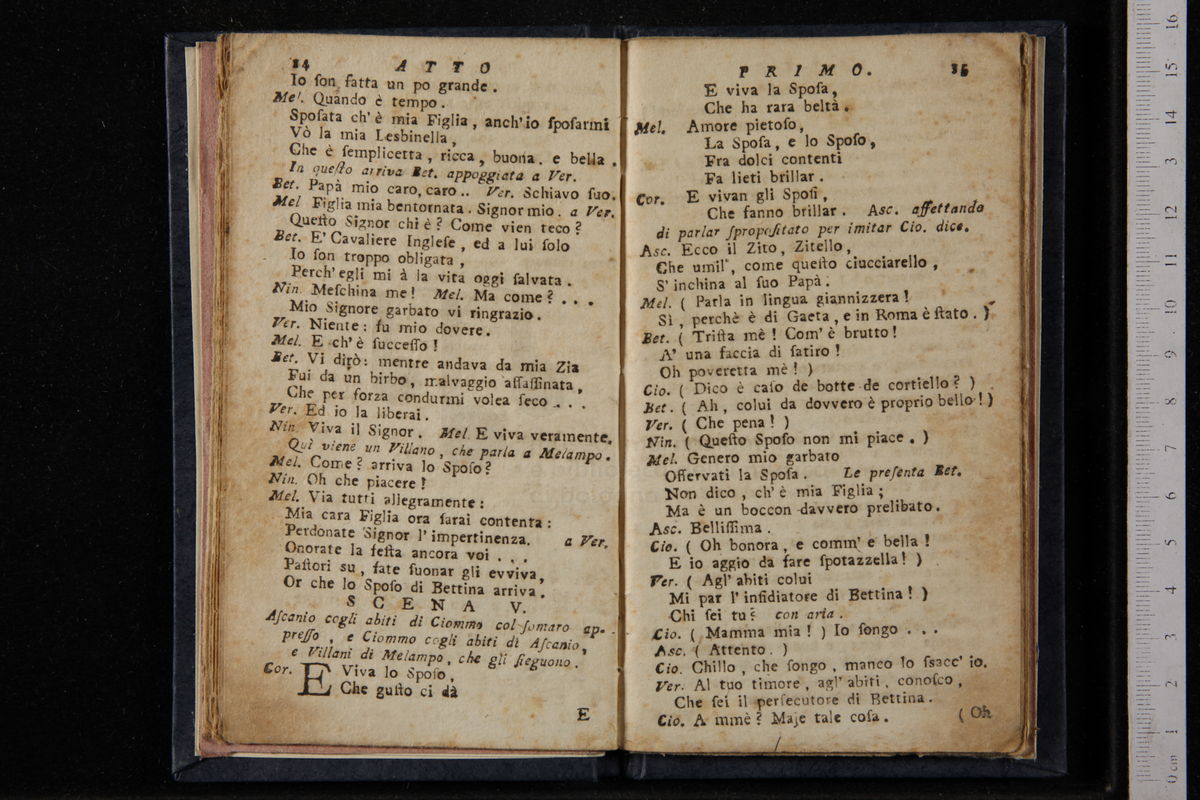 14 ATTO
Io ſon fatta un po grande.
Mel. Quando è tempo.
Spoſata ch'è mia Figlia, anch'io ſpoſarmi
Vò la mia Lesbinella,
Che è ſemplicetta, ricca, buona. e bella.
In queſto arriva Bet. appoggiata a Ver.
Bet. Papà mio caro, caro.. Ver. Schiavo ſuo.
Mel Figlia mia bentornata. Signor mio. a Ver.
Queſto Signor chi è? Come vien teco?
Bet. E' Cavaliere Ingleſe, ed a lui ſolo
Io ſon troppo obligata,
Perch'egli mi à la vita oggi ſalvata.
Nin. Meſchina me! Mel. Ma come? . . .
Mio Signore garbato vi ringrazio.
Ver. Niente: fu mio dovere.
Mel. E ch'è ſucceſſo!
Bet. Vi dirò: mentre andava da mia Zia
Fui da un birbo, malvaggio aſſaſſinata,
Che per forza condurmi volea ſeco . . .
Ver. Ed io la liberai.
Nin. Viva il Signor. Mel. E viva veramente.
Quì viene un Villano, che parla a Melampo.
Mel. Come? arriva lo Spoſo?
Nin. Oh che piacere!
Mel. Via tutti allegramente:
Mia cara Figlia ora ſarai contenta:
Perdonate Signor l'impertinenza. a Ver.
Onorate la feſta ancora voi . . .
Paſtori su, fate ſuonar gli evviva,
Or che lo Spoſo di Bettina arriva.
SCENA V.
Aſcanio cogli abiti di Ciommo col ſomaro ap-
preſſo, e Ciommo cogli abiti di Aſcanio,
e Villani di Melampo, che gli ſieguono.
Cor. E Viva lo Spoſo,
Che guſto ci dà
E
PRIMO. 15
E viva la Spoſa,
Che ha rara beltà.
Mel. Amore pietoſo,
La Spoſa, e lo Spoſo,
Fra dolci contenti
Fa lieti brillar.
Cor. E vivan gli Spoſi,
Che fanno brillar. Asc. affettando
di parlar ſpropoſitato per imitar Cio. dice.
Asc. Ecco il Zito, Zitello,
Che umil', come queſto ciucciarello,
S'inchina al ſuo Papà.
Mel. ( Parla in lingua giannizzera!
Sì, perchè è di Gaeta, e in Roma è ſtato. )
Bet. ( Triſta mè! Com'è brutto!
A' una faccia di ſatiro!
Oh poveretta mè! )
Cio. ( Dico è caſo de botte de cortiello? )
Bet. ( Ah, colui da dovvero è proprio bello! )
Ver. ( Che pena! )
Nin. ( Queſto Spoſo non mi piace. )
Mel. Genero mio garbato
Oſſervati la Spoſa. Le preſenta Bet.
Non dico, ch'è mia Figlia;
Ma è un boccon davvero prelibato.
Asc. Belliſſima.
Cio. ( Oh bonora, e comm' e bella!
E io aggio da fare ſpotazzella! )
Ver. ( Agl'abiti colui
Mi par l'inſidiatore di Bettina! )
Chi ſei tu? con aria.
Cio. ( Mamma mia! ) Io ſongo . . .
Asc. ( Attento. )
Cio. Chillo, che ſongo, manco lo ſsacc' io.
Ver. Al tuo timore, agl'abiti, conoſco,
Che ſei il perſecutore di Bettina.
Cio. A mmè? Maje tale coſa. ( Oh